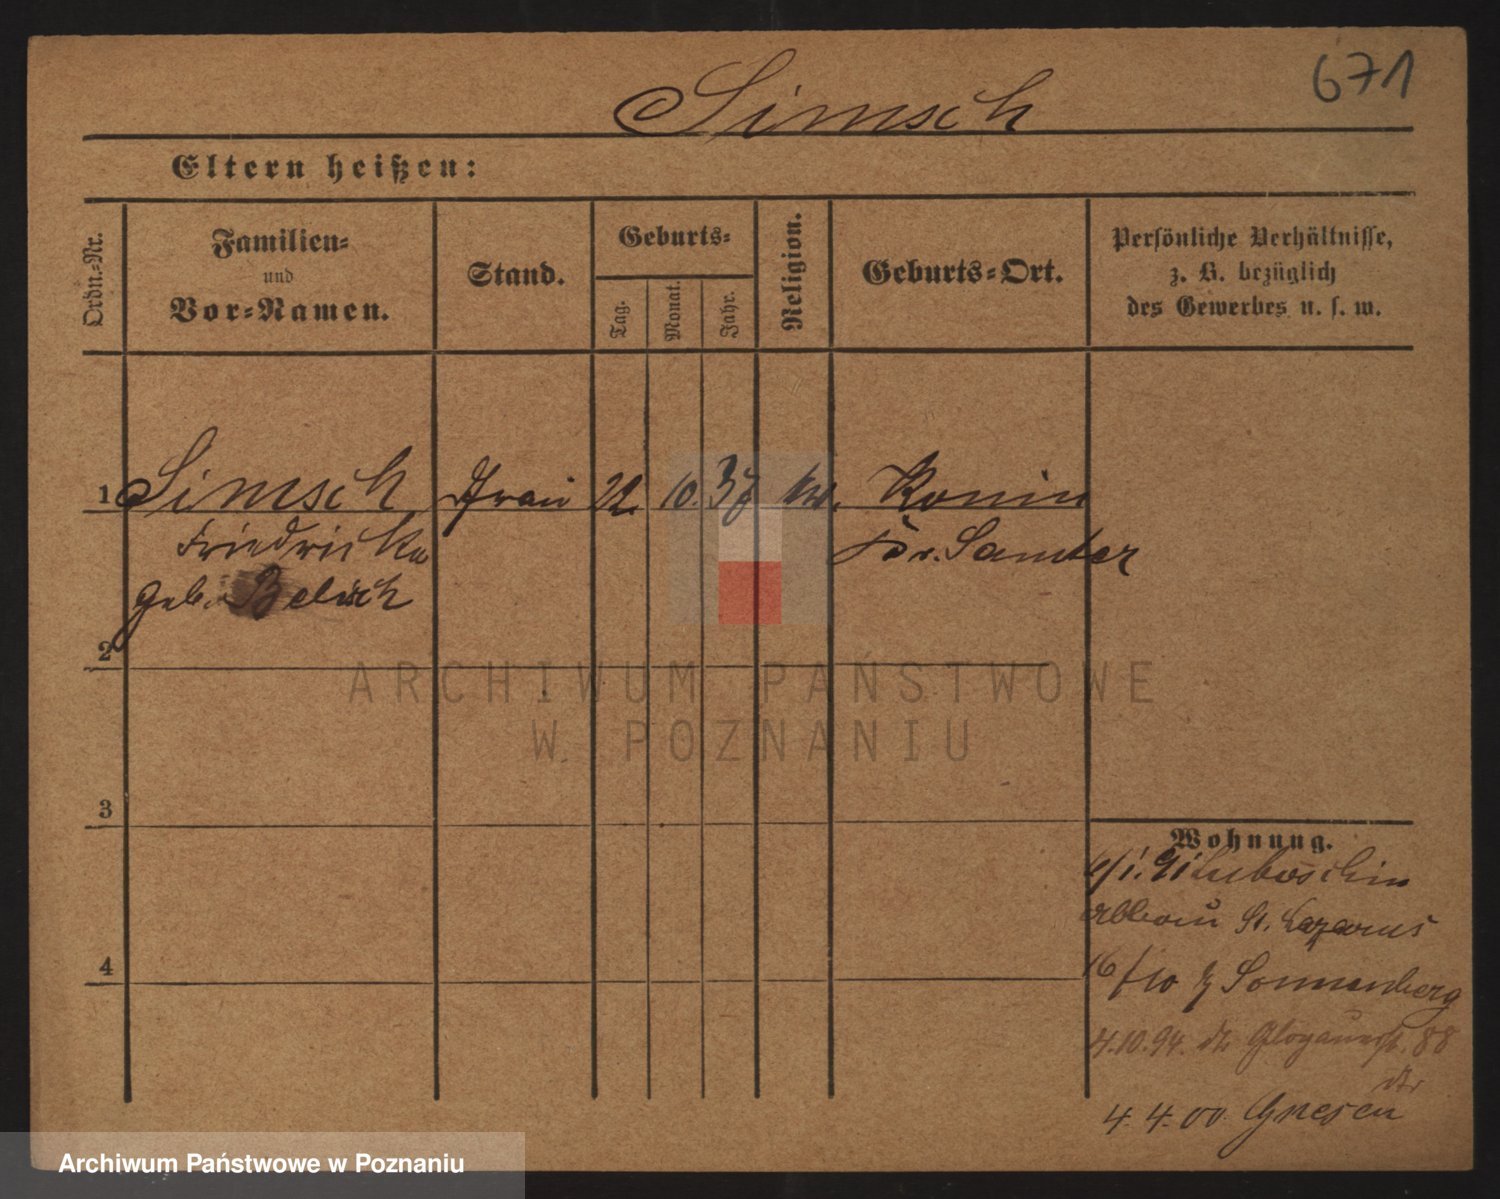 671
Simsch
Eltern heißen:
Ordn.-Nr.
Familien-
und
Vor-Namen.
Stand.
Geburts-
Tag.
Monat.
Jahr.
Religion.
Geburts-Ort.
Persönliche Verhältnisse,
z. B. bezüglich
des Gewerbes u. s. w.
1 Simsch Frau 22. 10. 37 Konin
Friedricka Kr. Samter
geb.
2
3
4
Wohnung.
Abbau St. Lazarus
16/10 Sonnenberg
4.10.94. Glogauerstr. 88
4. 4. 00. Gnesen
ARCHIWUM PAŃSTWOWE
W POZNANIU
Archiwum Państwowe w Poznaniu